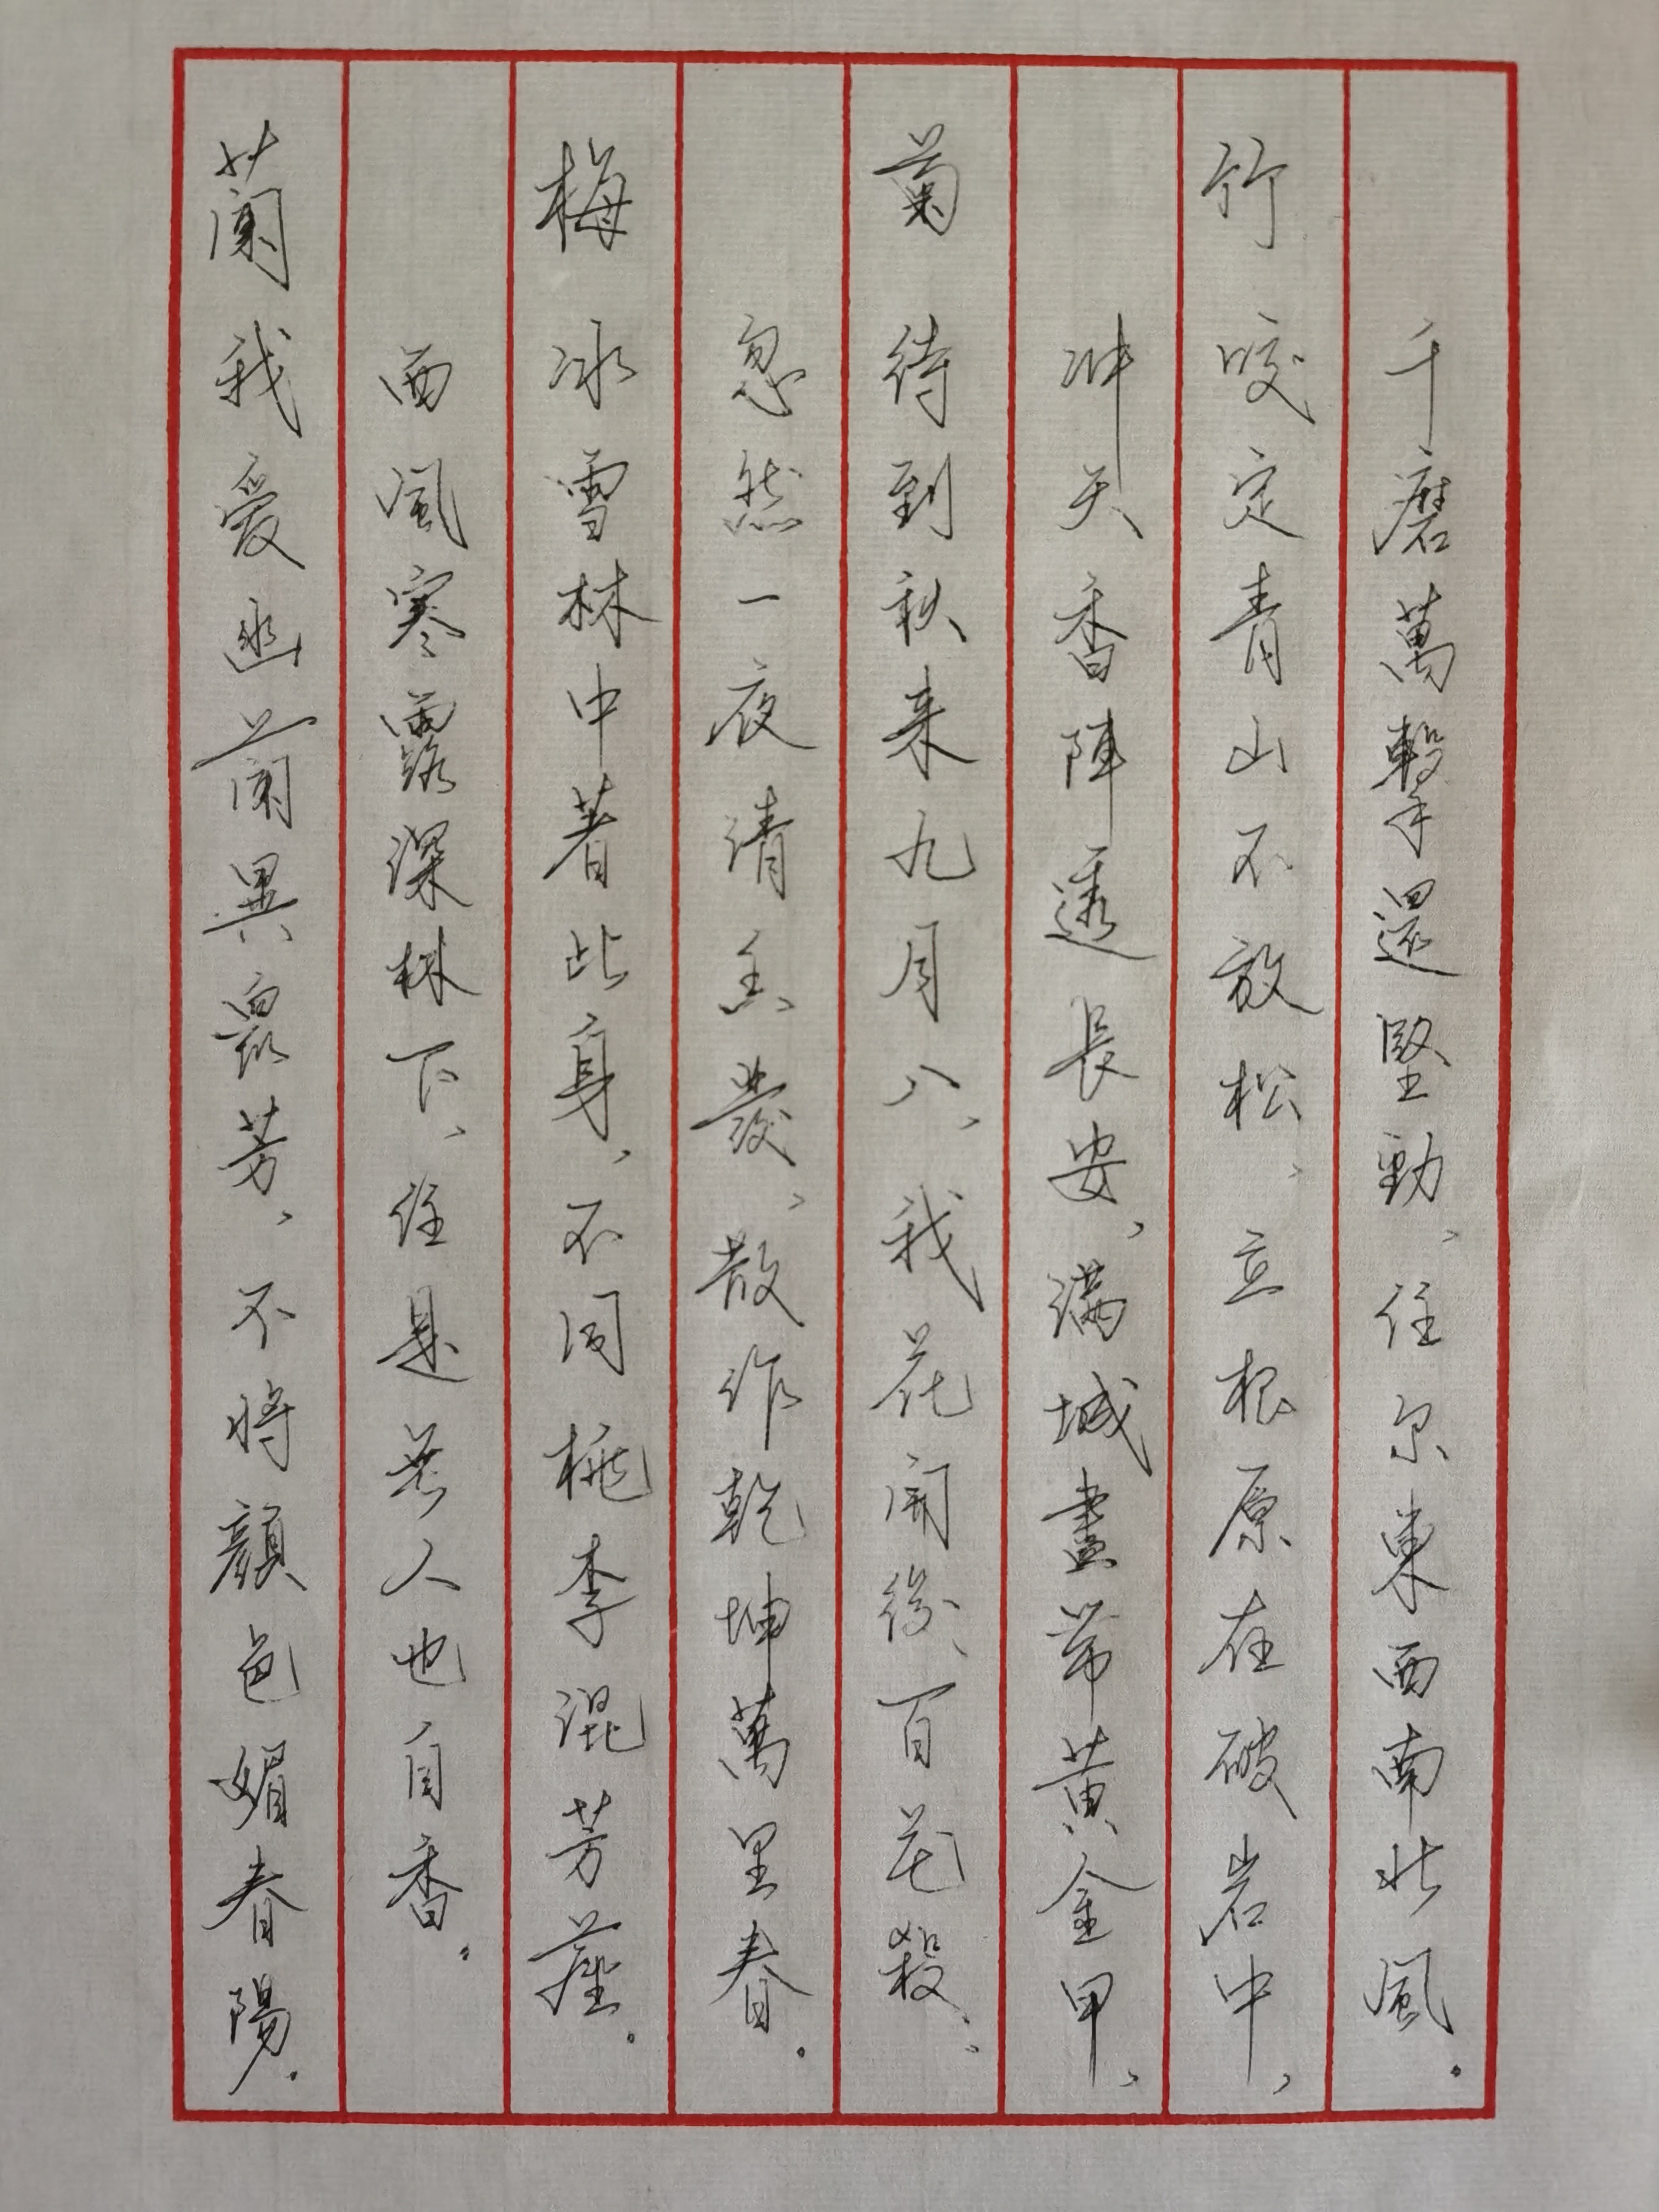 蘭 我愛幽蘭異眾芳，不將顏色媚春陽。
西風寒露深林下，任是無人也自香。
梅 冰雪林中著此身，不同桃李混芳塵。
忽然一夜清香發，散作乾坤萬里春。
菊 待到秋来九月八，我花開後百花殺，
冲天香陣透長安，滿城盡帶黃金甲，
竹 咬定青山不放松，立根原在破岩中，
千磨萬擊還堅勁，任尔東西南北風。